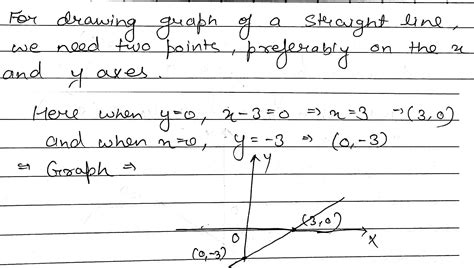 For drawing graph of a straight line,
we need two points, preferably on the x
and y axes.
Here when y=0, x-3=0 ⇒ x=3 → (3,0)
and when x=0, y=-3 ⇒ (0,-3)
⇒ Graph ⇒
y
(3,0)
0
x
(0,-3)